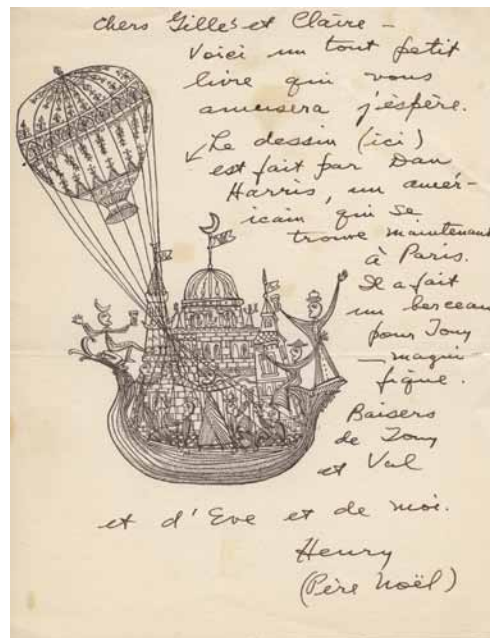 Chers Gilles et Claire –
Voici un tout petit
livre qui vous
amusera j'éspère.
Le dessin (ici)
est fait par Dan
Harris, un amér-
icain qui se
trouve maintenant
à Paris.
Il a fait
un berceau
pour Tony
– magni-
fique.
Baisers
de Tony
et Val
et d'Eve et de moi.
Henry
(Père Noël)